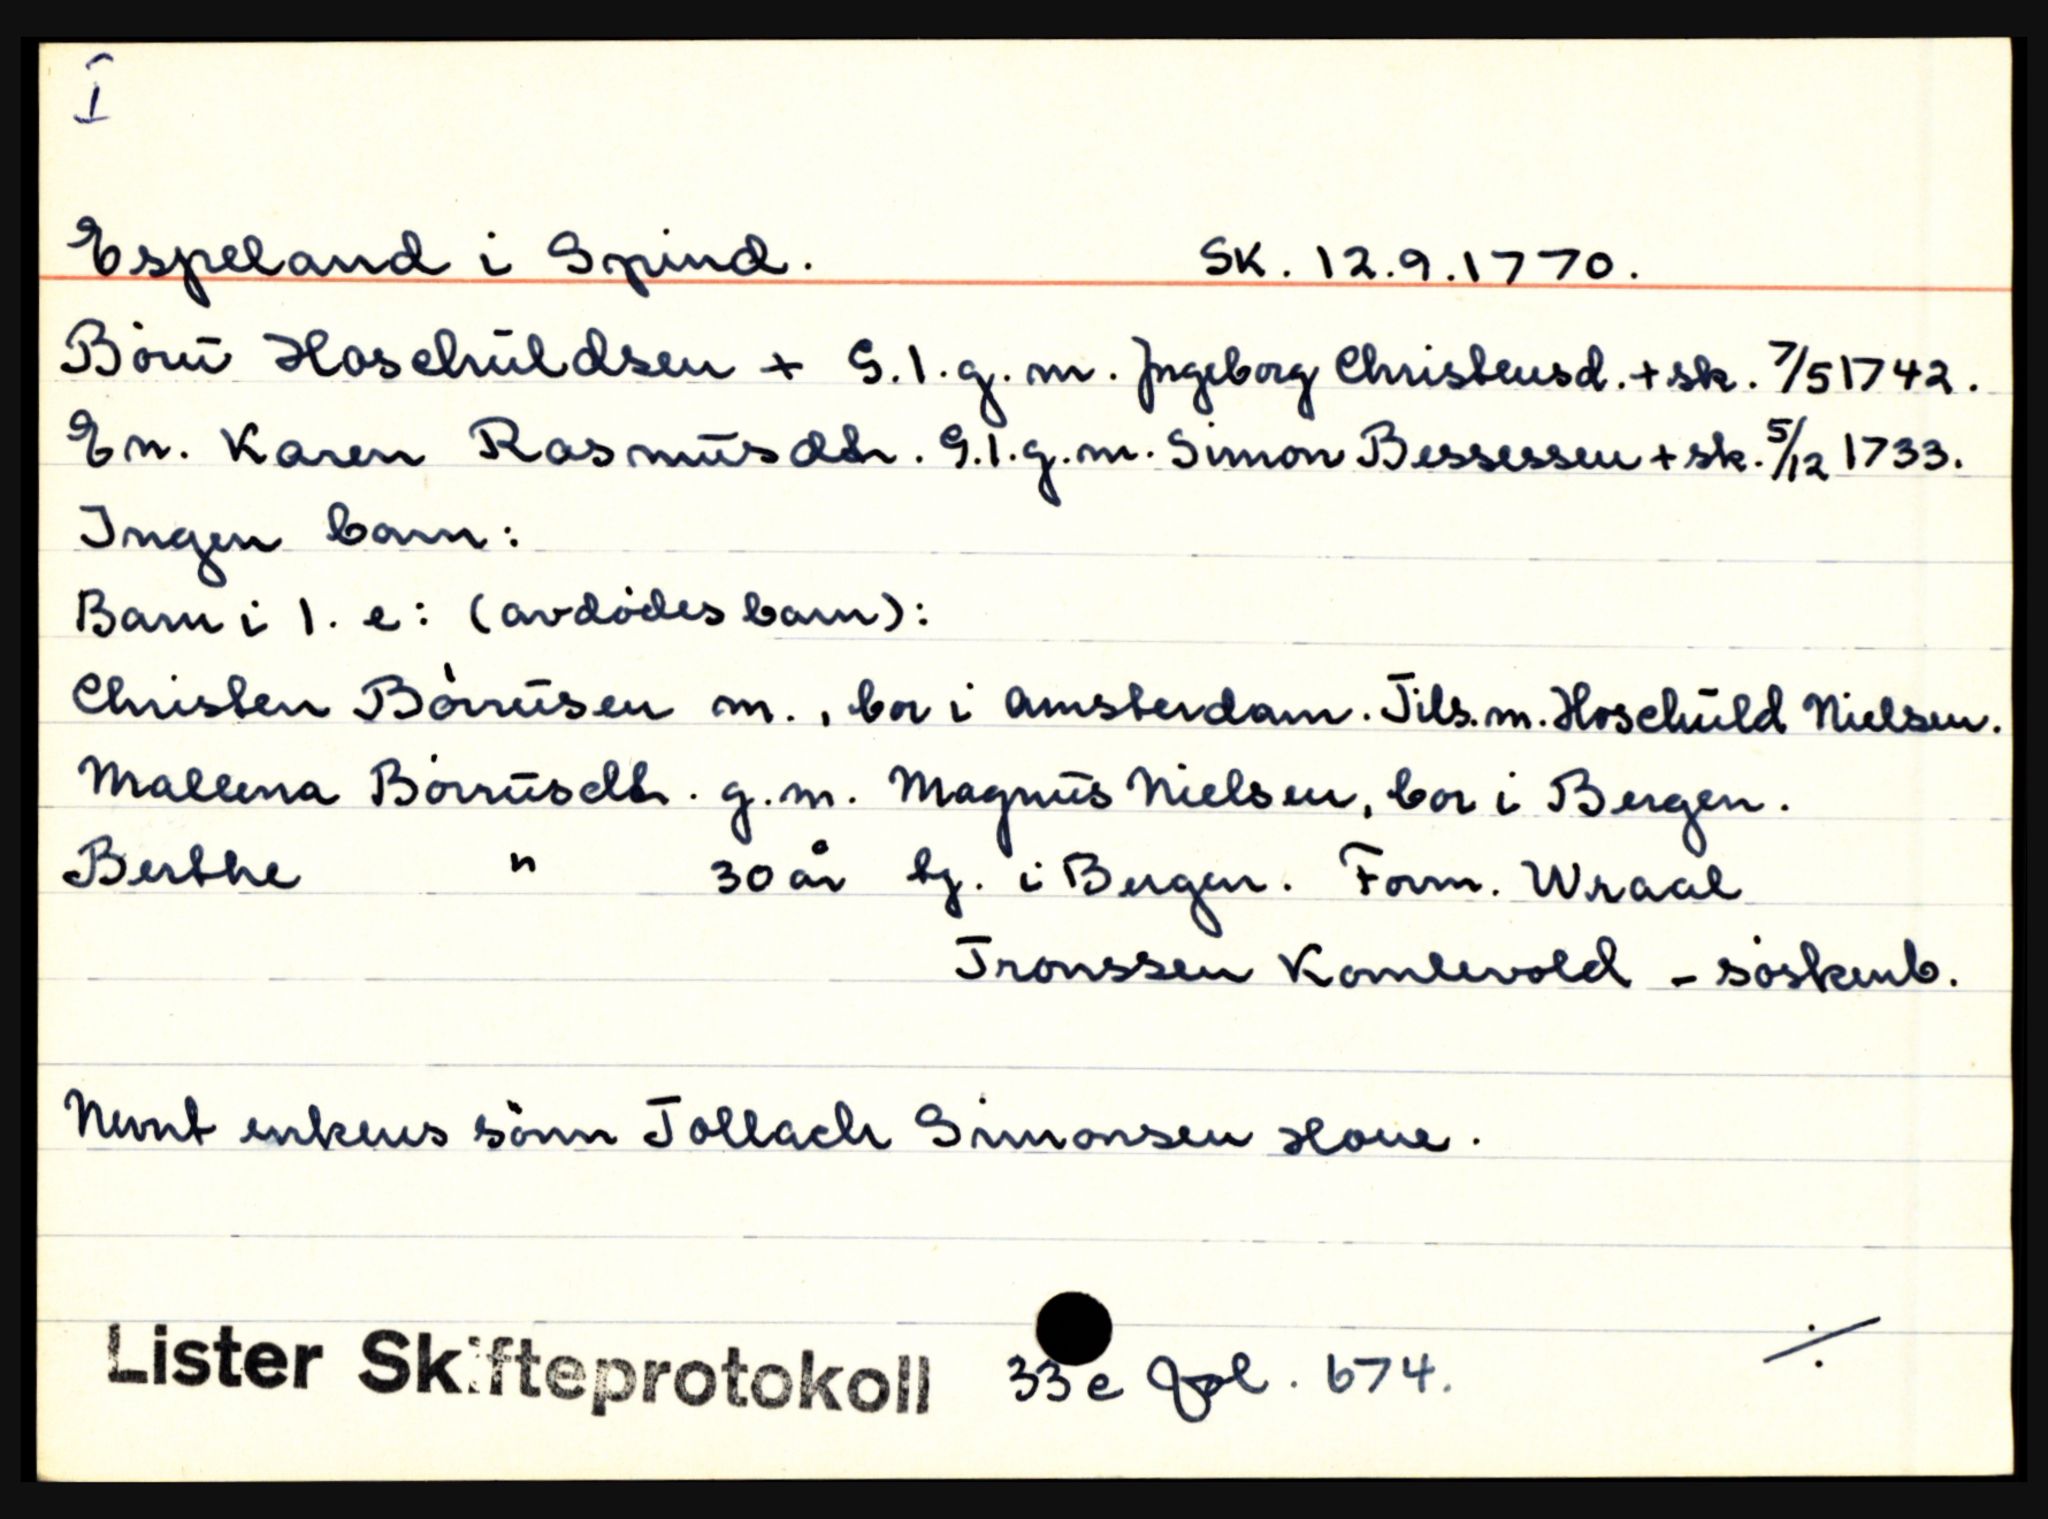 I
Espeland i Spind. SK. 12.9.1770.
Börü Hoschüldsen + G.1.g.m. Ingeborg Christensd. + sk. 7/5 1742.
En. Karen Rasmüsdtr. G.1.g.m. Simon Bessessen + sk. 5/12 1733.
Ingen barn:
Barn i 1. e: (avdödes barn):
Christen Börrüsen m., bor i Amsterdam. Tils.m. Hoschüld Nielsen.
Mallena Börrüsdtr. g.m. Magnüs Nielsen, bor i Bergen.
Berthe " 30 år tj. i Bergen. Form. Wraal
Tronssen Kamlevold - söskenb.
Nevnt enkens sönn Tollach Simonsen Houe.
Lister Skifteprotokoll 33 e fol. 674.
÷